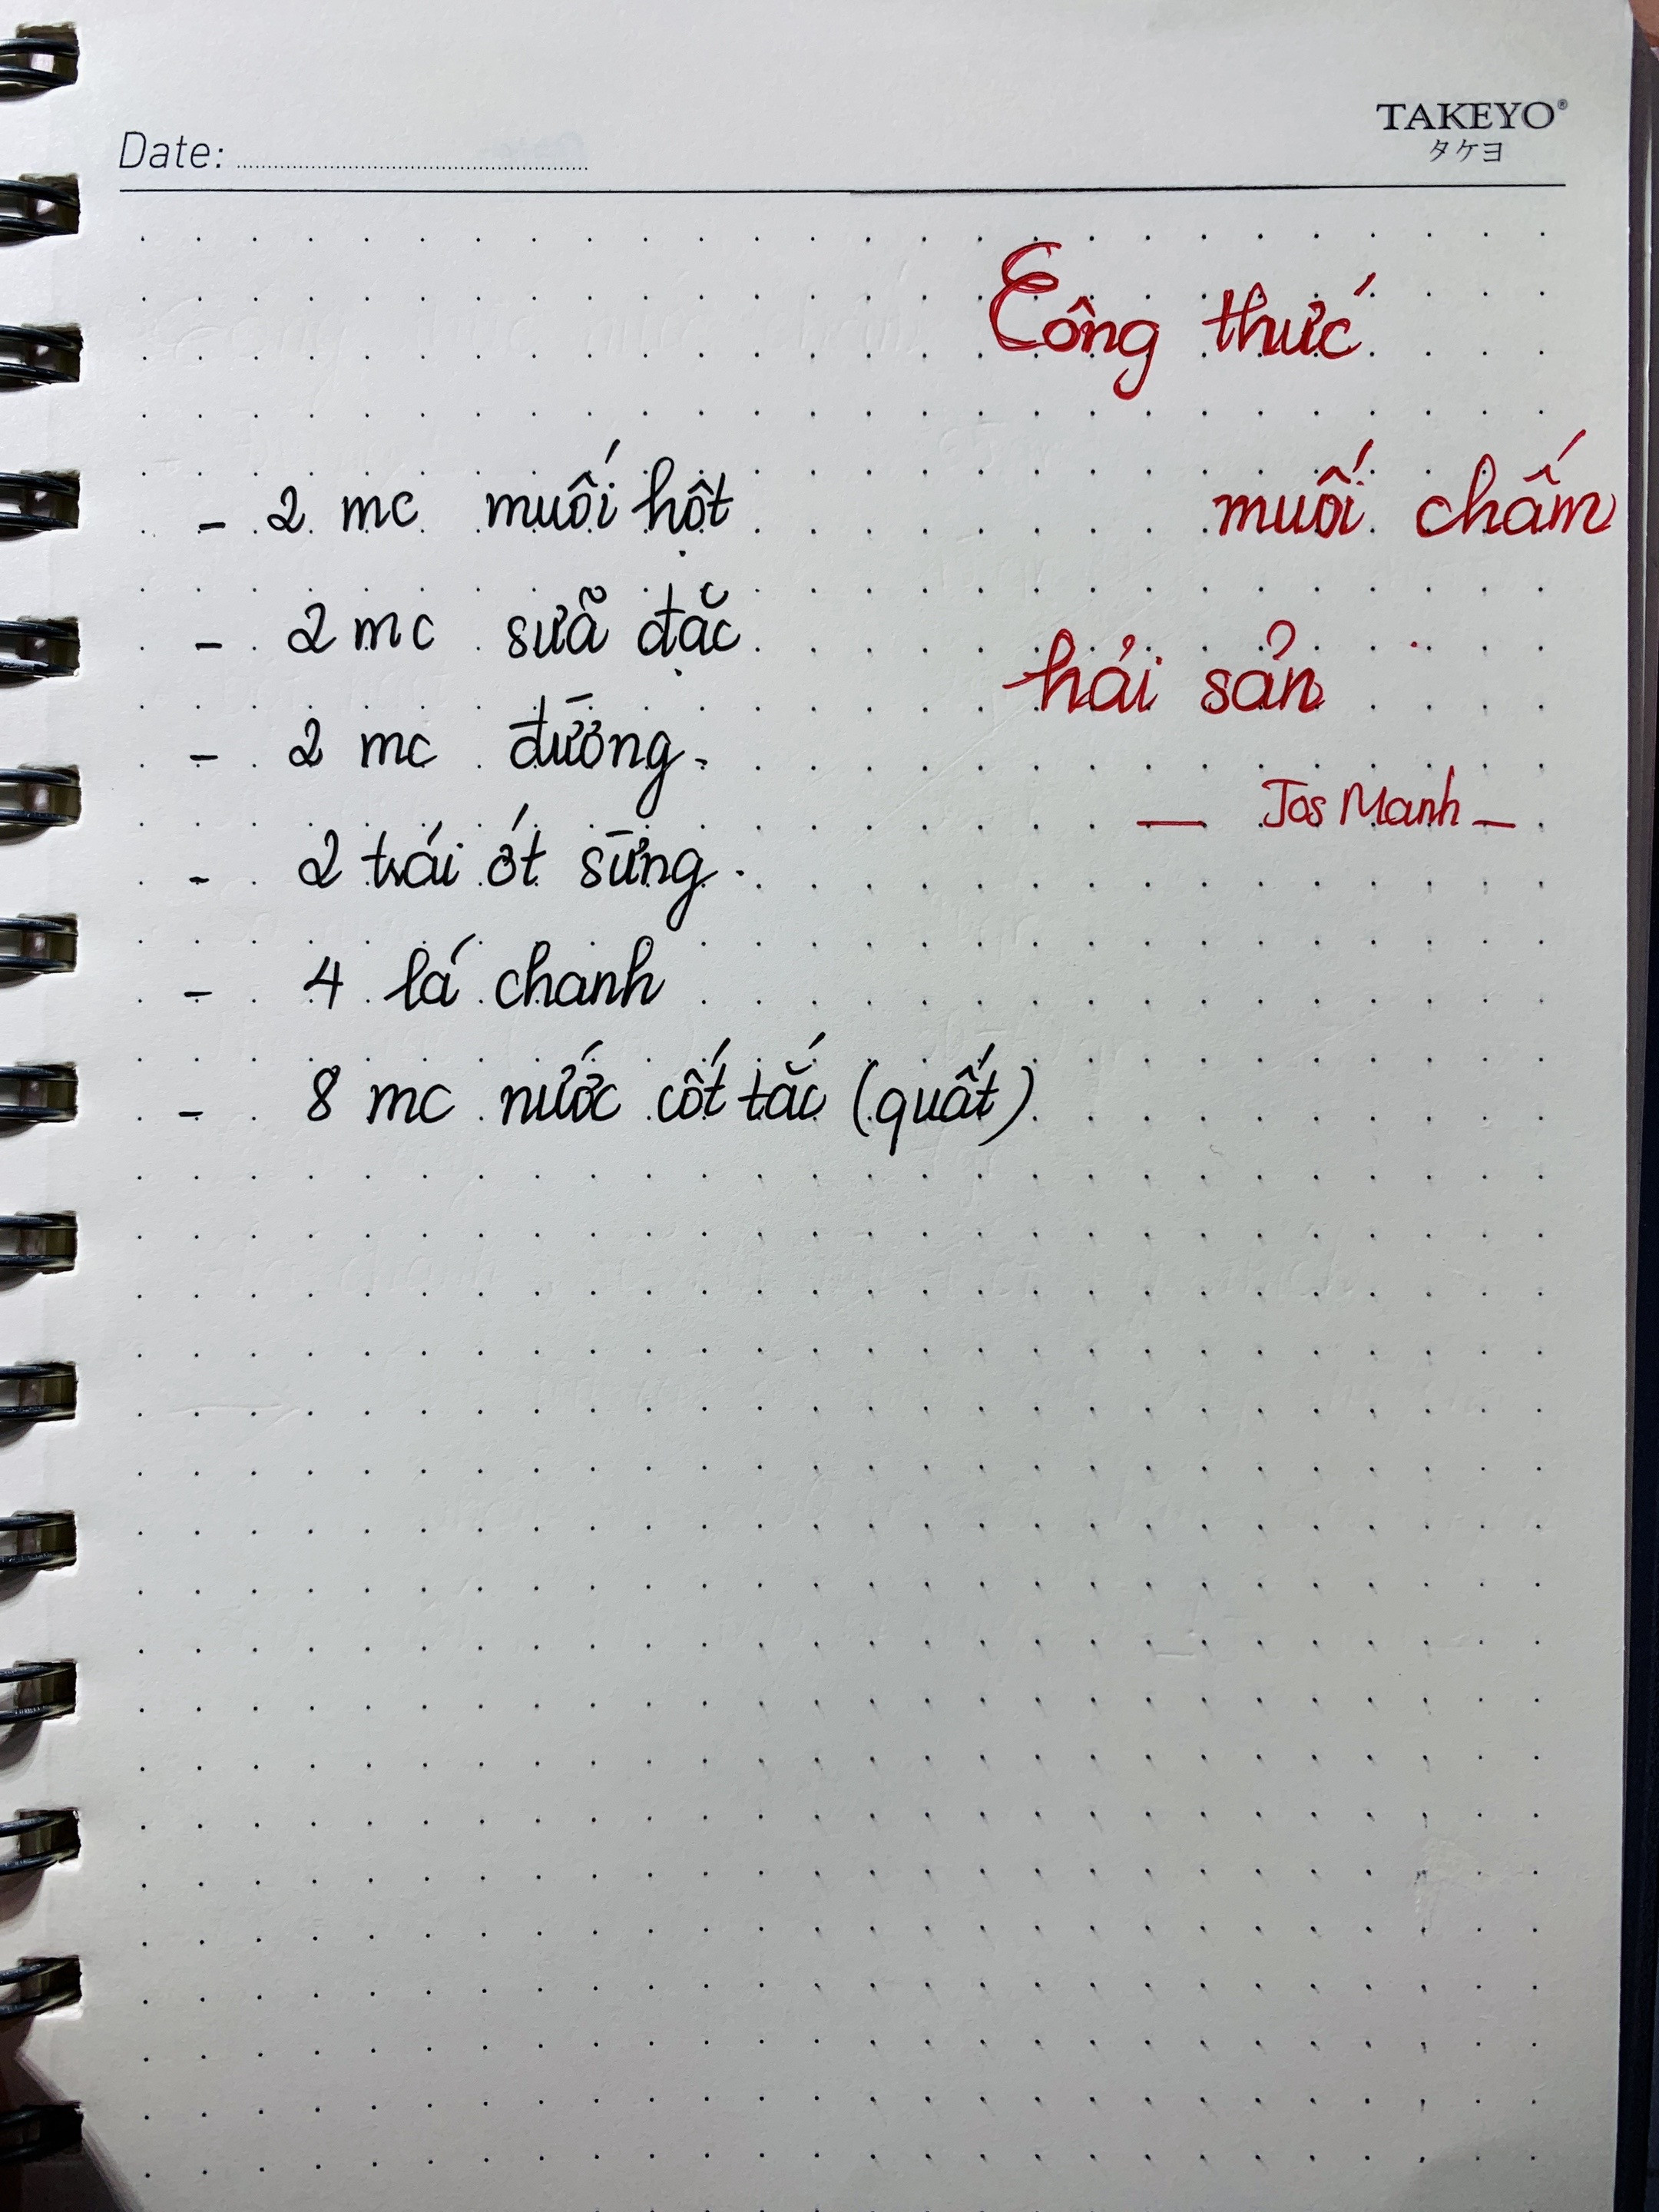 TAKEYO®
タケヨ
Date:
Công thức
muối chấm
hải sản
— Jos Manh —
- 2 mc muối hột
- 2 mc sữa đặc
- 2 mc đường.
- 2 trái ớt sừng.
- 4 lá chanh
- 8 mc nước cốt tắc (quất)